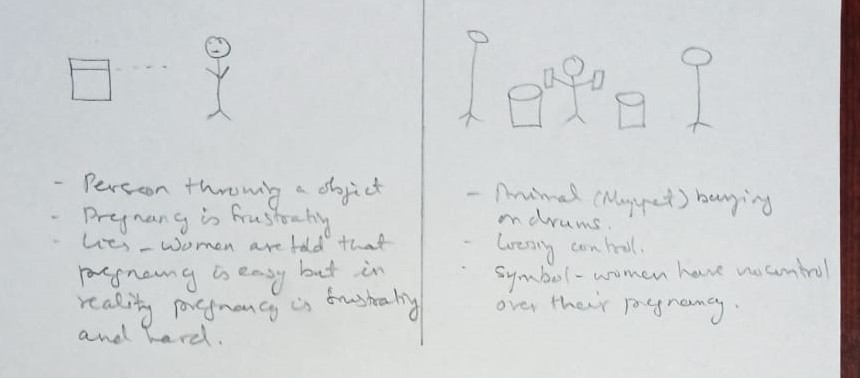 - Person throwing a object
- Pregnancy is frustratiy
- Lies - Women are told that
pregnancy is easy but in
reality pregnancy is frustratiy
and hard.
- Animal (Muppet) banging
on drums.
- Losing control.
- Symbol - women have no control
over their pregnancy.